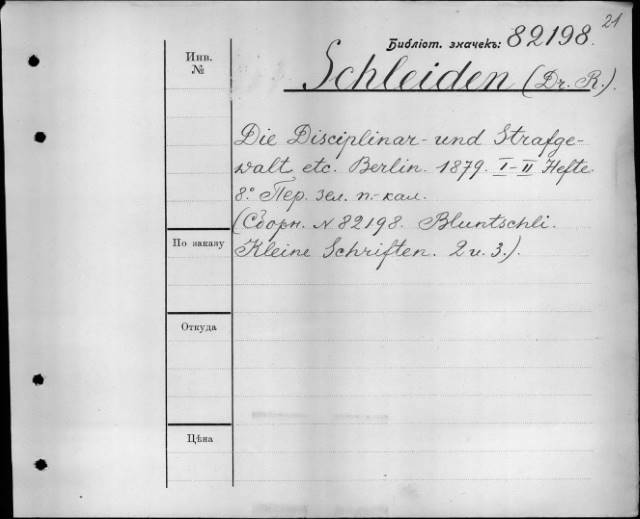 21
Библіот. значекъ: 82198.
Инв. №
Schleiden (Dr. R.).
Die Disciplinar- und Strafge-
walt, etc. Berlin. 1879. I-II Hefte.
8° Пер. зел. п.-кал.
(Сборн. N 82198. Bluntschli.
По заказу
Kleine Schriften. 2 u. 3.).
Откуда
Цѣна